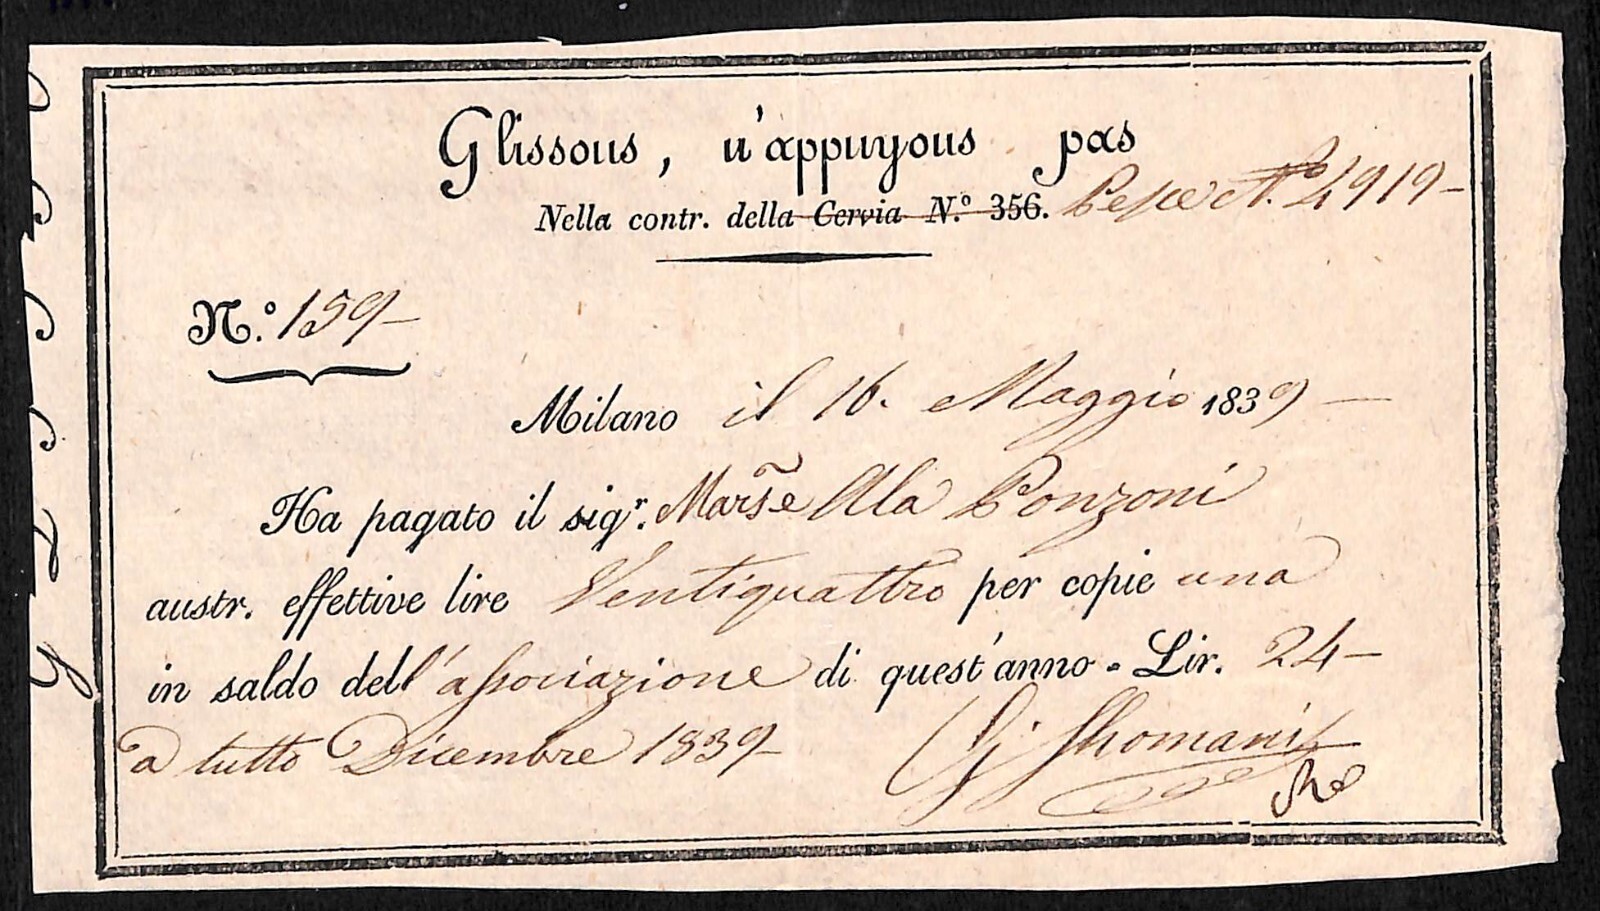 Glissons, n'appuyons pas
Nella contr. della Cervia N.º 356. N.º 4919-
N.º 159-
Milano il 16. Maggio 1839 —
Ha pagato il sigʳ. Marse Ala Ponzoni
austr. effettive lire Ventiquattro per copie una
in saldo dell'associazione di quest'anno - Lir. 24-
a tutto Dicembre 1839-